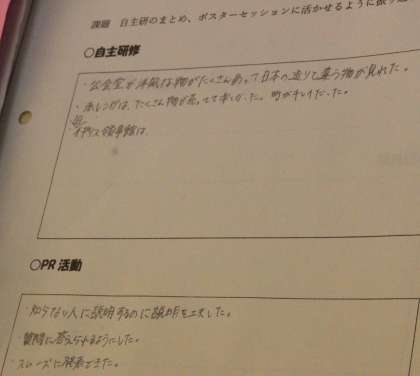 課題 自主研のまとめ、ポスターセッションに活かせるように振り返
○自主研修
・公会堂が洋風な物がたくさんあって日本の造りと違う物が見れた。
・赤レンガは、たくさん物が売ってて楽しかった。町がキレイだった。
・イギリス領事館は、
○PR活動
・知らない人に説明するのに説明を工夫した。
・質問に答えられるようにした。
・スムーズに発表できた。